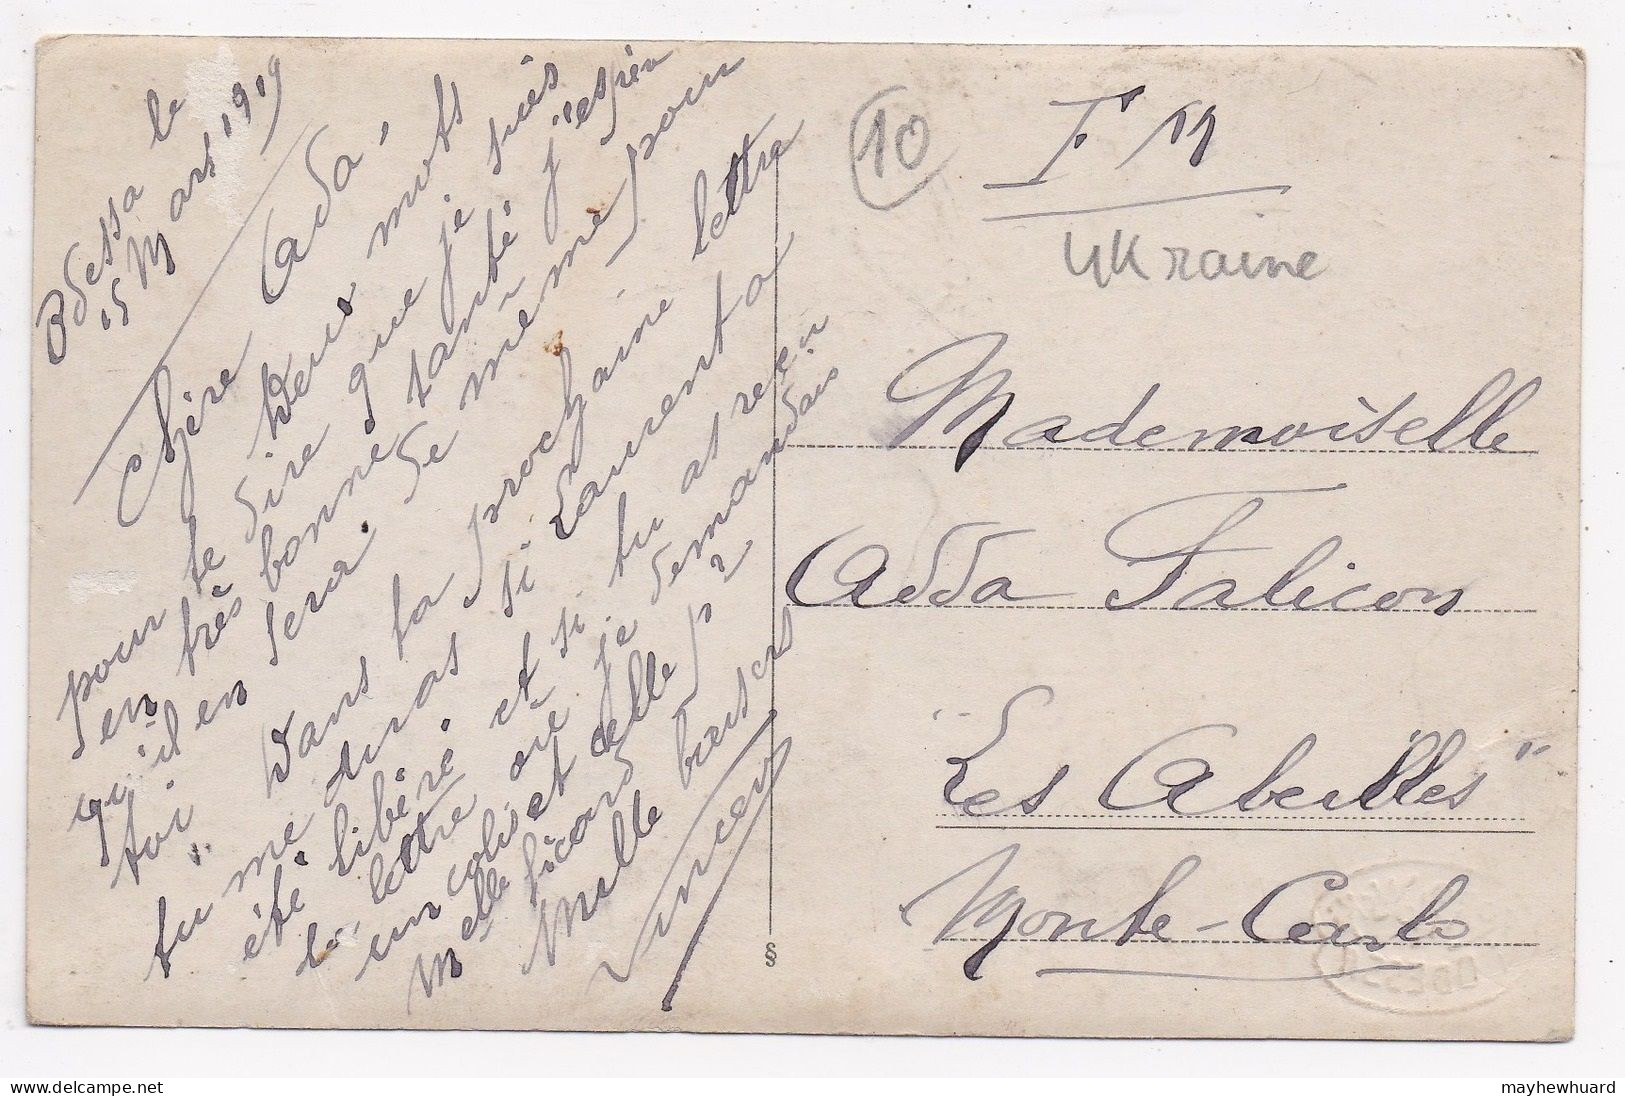 Odessa le
15 Mars 1919
Chère Ada,
Deux mots
pour te dire que je suis
en très bonne santé j'espère
qu'il en sera de même pour
toi. Dans ta prochaine lettre
tu me diras si Laurent a
été libéré et si tu as reçu
la lettre où je demandais
un colis et celle p^r
M^elle Ficard
Mille baisers
Vincent
10
F M
Ukraine
Mademoiselle
Adda Falicon
"Les Abeilles"
Monte-Carlo
§
delcampe.net
mayhewhuard